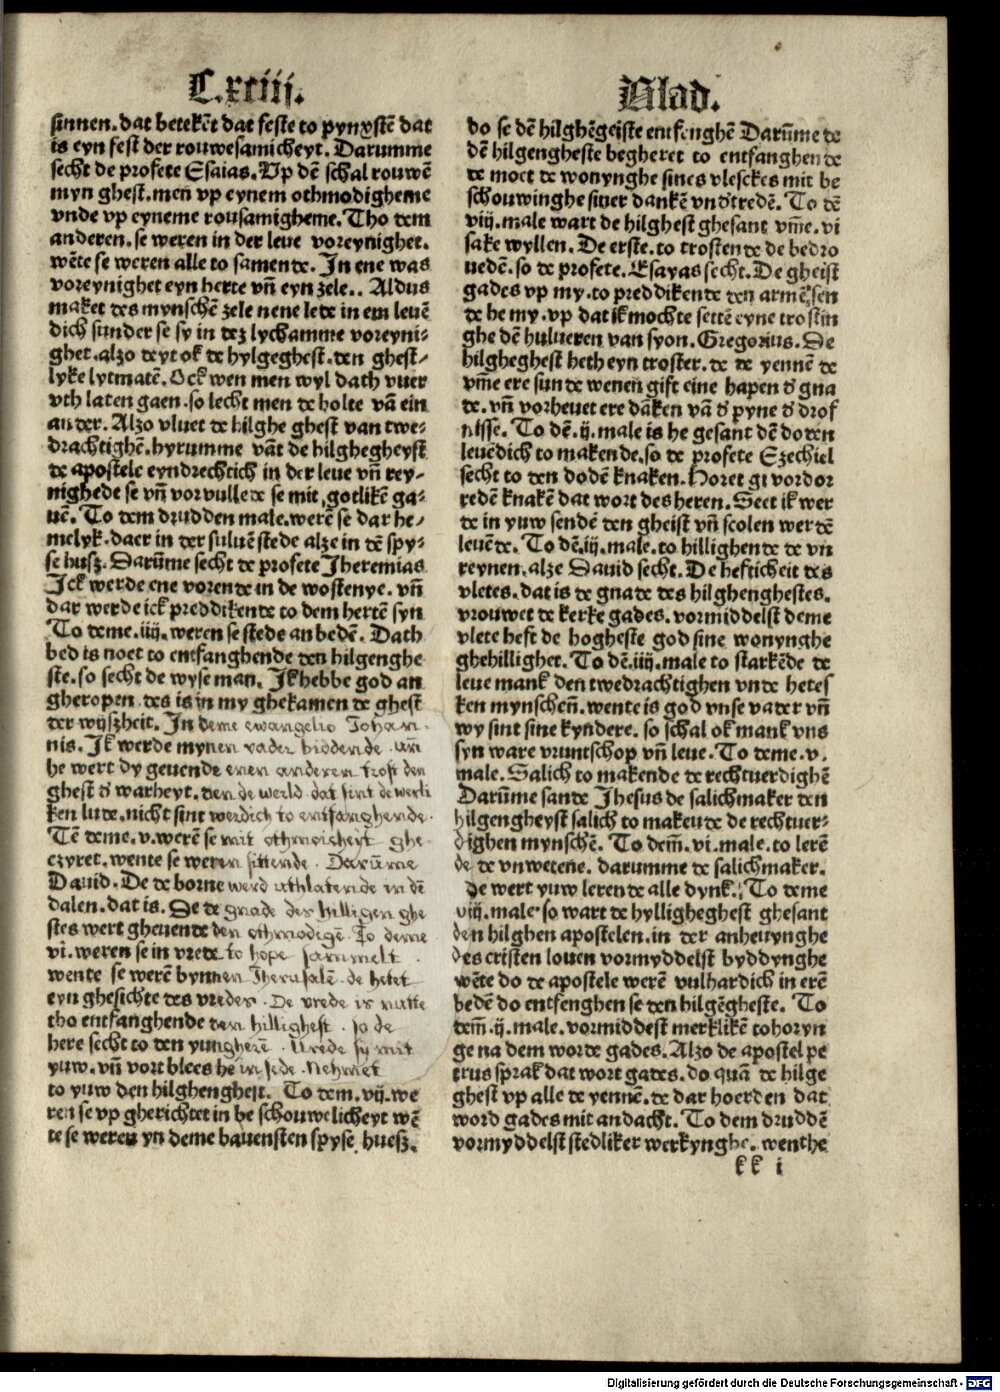 C.xciiij.
sinnen.dat betekēt dat feste to pynxstē dat
is eyn fest der rouwesamicheyt. Darumme
secht de profete Esaias. Up dē schal rouwē
myn ghest.men vp eynem othmodigheme
vnde vp eyneme rousamigheme. Tho dem
anderen.se weren in der leue voreynighet.
wēte se weren alle to samende. In ene was
voreynighet eyn herte vn̄ eyn zele.. Aldus
maket des mynschē zele nene lede in em leuē
dich sunder se sy in dez lychamme voreyni-
ghet.alzo deyt ok de hylgeghest.den ghest-
lyke lytmatē. Ock wen men wyl dath vuer
vth laten gaen.so lecht men de holte vā ein
ander. Alzo vluet de hilghe ghest van twe-
drachtighē.hyrumme vāt de hilghegheyst
de apostele eyndrechtich in der leue vn̄ rey-
nighede se vn̄ vorvullede se mit.gotlikē ga-
uē. To dem drudden male.werē se dar he-
melyk.daer in der suluē stede alze in dē spy-
se husz. Darūme secht de profete Jheremias
Ick werde ene vorende in de wostenye. vn̄
dar werde ick preddikende to dem hertē syn
To deme.iiij.weren se stede an bedē. Dath
bed is noet to entfanghende den hilgenghe
ste.so secht de wyse man. Ik hebbe god an
gheropen.des is in my ghekamen de ghest
der wijszheit. In deme ewangelio Johan-
nis. Ik werde mynen vader biddende. vn̄
he wert dy geuende enen anderen trost den
ghest d̄ warheyt. den de werld.dat sint de werli
ken lude.nicht sint werdich to entfanghende.
Tē deme.v.werē se mit othmoicheyt ghe-
czyret.wente se weren sittende. Darūme
Dauid. De de borne werd uthlatende in dē
dalen.dat is. De de gnade des hilligen ghe
stes wert gheuende den othmodigē. To deme
vi.weren se in vrede to hope sammelt.
wente se werē bynnen Jherusalē.de hetet
eyn ghesichte des vredes. De vrede is nutte
tho entfanghende den hillighest. so de
here secht to den yungherē. Vrede sy mit
yuw.vn̄ vort blees he in sede. Nehmet
to yuw den hilghenghest. To dem.vij.we
ren se vp gherichtet in be schouwelicheyt wē
te se weren yn deme bauensten spyse huesz.
Blad.
do se dē hilghēgeiste entfenghē Darūme de
dē hilgengheste begheret to entfanghende
de moet de wonynghe sines vlesckes mit be
schouwinghe siner dankē vnd̄tredē. To dē
viij.male wart de hilghest ghesant vm̄e.vi
sake wyllen. De erste.to trostende de bedro
uedē.so de profete. Esayas secht. De gheist
gades vp my.to preddikende den armē.sen
de he my.vp dat ik mochte settē eyne trostin
ghe dē hulueren van syon. Gregorius. De
hilgheghest heth eyn troster.de de yennē de
vm̄e ere sunde wenen gift eine hapen d̄ gna
de.vn̄ vorheuet ere dākē vā d̄ pyne d̄ drof
nisse. To dē.ij.male is he gesant dē doden
leuēdich to makende.so de profete Ezechiel
secht to den dodē knaken. Horet gi vordor
redē knakē dat wort des heren. Seet ik wer
de in yuw sendē den gheist vn̄ scolen werdē
leuēde. To dē.iij.male.to hillighende de vn
reynen.alze Dauid secht. De hefticheit des
vletes.dat is de gnade des hilghenghestes.
vrouwet de kerke gades.vormiddelst deme
vlete heft de hogheste god sine wonynghe
ghehillighet. To dē.iiij.male to starkēde de
leue mank den twedrachtighen vnde hetes
ken mynschen̄.wente is god vnse vader vn̄
wy sint sine kyndere.so schal ok mank vns
syn ware vruntschop vn̄ leue. To deme.v.
male. Salich to makende de rechtuerdighē
Darūme sande Jhesus de salichmaker den
hilgengheyst salich to makende de rechtuer-
dighen mynschē. To dem̄.vi.male.to lerē
de de vnwetene. darumme de salichmaker.
De wert yuw lerende alle dynk. To deme
viij.male.so wart de hylligheghest ghesant
den hilghen apostelen.in der anheuynghe
des cristen louen vormyddelst byddynghe
wēte do de apostele werē vulhardich in erē
bedē do entfenghen se den hilgēgheste. To
dem̄.ij.male.vormiddest merklikē tohoryn
ge na dem worde gades. Alzo de apostel pe
trus sprak dat wort gades.do quā de hilge
ghest vp alle de yennē.de dar hoerden dat
word gades mit andacht. To dem druddē
vormyddelst stedliker werkynghe.wenthe
kk i
Digitalisierung gefördert durch die Deutsche Forschungsgemeinschaft - DFG